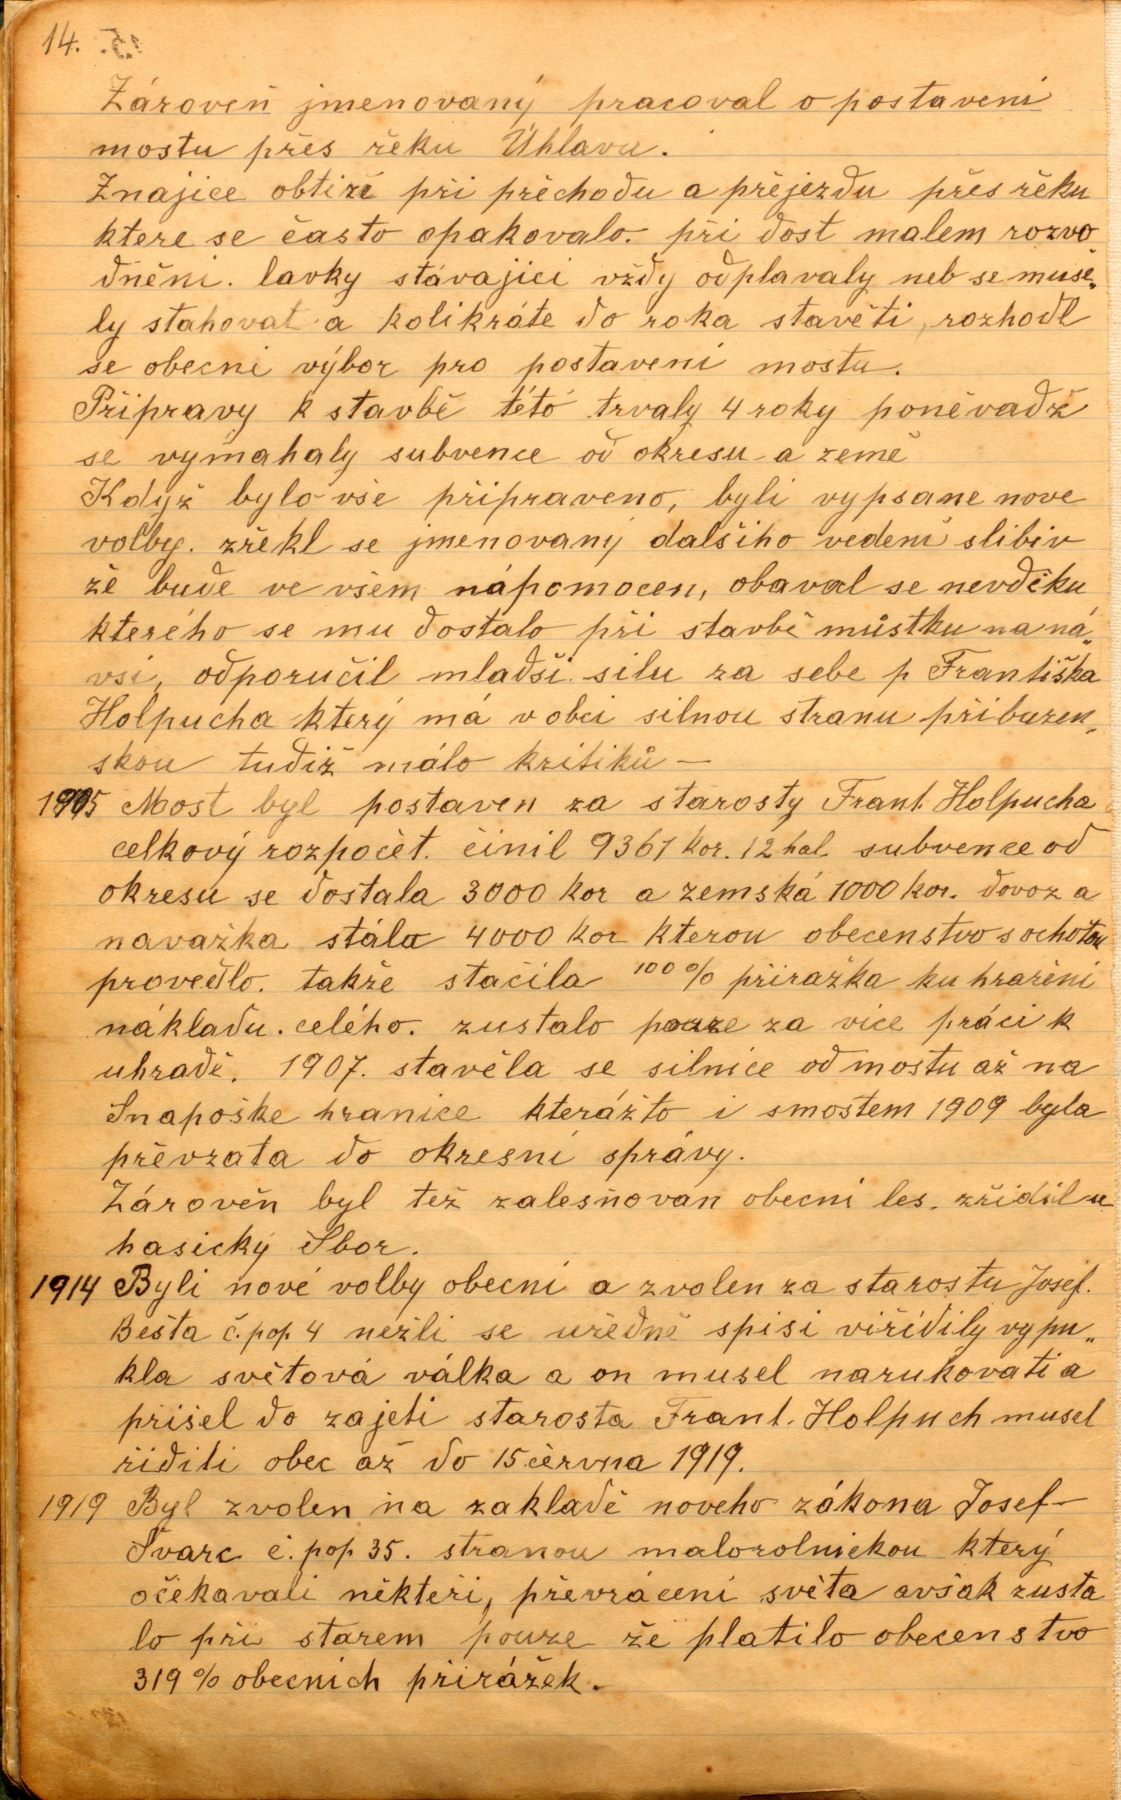 14.
Zároveň jmenovaný pracoval o postaveni
mostu přes řeku Úhlavu.
Znajice obtiže při přěchodu a přějezdu přes řěku
ktere se často opakovalo. při dost malem rozvo
dněni. lavky stávajici vždy odplavaly neb se muse„
ly stahovat a kolikráte do roka stavěti, rozhodl
se obecni výbor pro postaveni mostu.
Připravy k stavbě této trvaly 4 roky poněvadž
se vymahaly subvence od okresu a země
Když bylo vše připraveno, byli vypsane nove
volby. zřekl se jmenovaný dalšiho vedeni slibiv
že bude ve všem nápomocen, obaval se nevděku
kterého se mu dostalo při stavbě můstku na ná„
vsi, odporučil mladši silu za sebe p Františka
Holpucha který má v obci silnou stranu přibuzen„
skou tudiž málo kritiků —
1905 Most byl postaven za starosty Frant. Holpucha
celkový rozpočet. činil 9361 kor. 12 hal. subvence od
okresu se dostala 3000 kor a zemská 1000 kor. dovoz a
navažka stála 4000 kor kterou obecenstvo s ochotou
provedlo. takže stačila 100% přiražka ku hrařeni
nákladu. celého. zustalo pouze za vice práci k
uhradě. 1907. stavěla se silnice od mostu až na
Snapoške hranice kterážto i smostem 1909 byla
přěvzata do okresni správy.
Zárověn byl tež zalesňovan obecni les. zřidil se
hasický Sbor.
1914 Byli nové volby obecni a zvolen za starostu Josef.
Bešta č. pop. 4 nežli se uředně spisi viřidily vypu„
kla světová válka a on musel narukovati a
přišel do zajeti starosta Frant. Holpuch musel
řiditi obec až do 15 června 1919.
1919 Byl zvolen na zakladě noveho zákona Josef—
Švarc č. pop 35. stranou malorolnickou který
očekavali někteři, převráceni světa avšak zusta
lo při starem pouze že platilo obecenstvo
319 % obecnich přirážek.